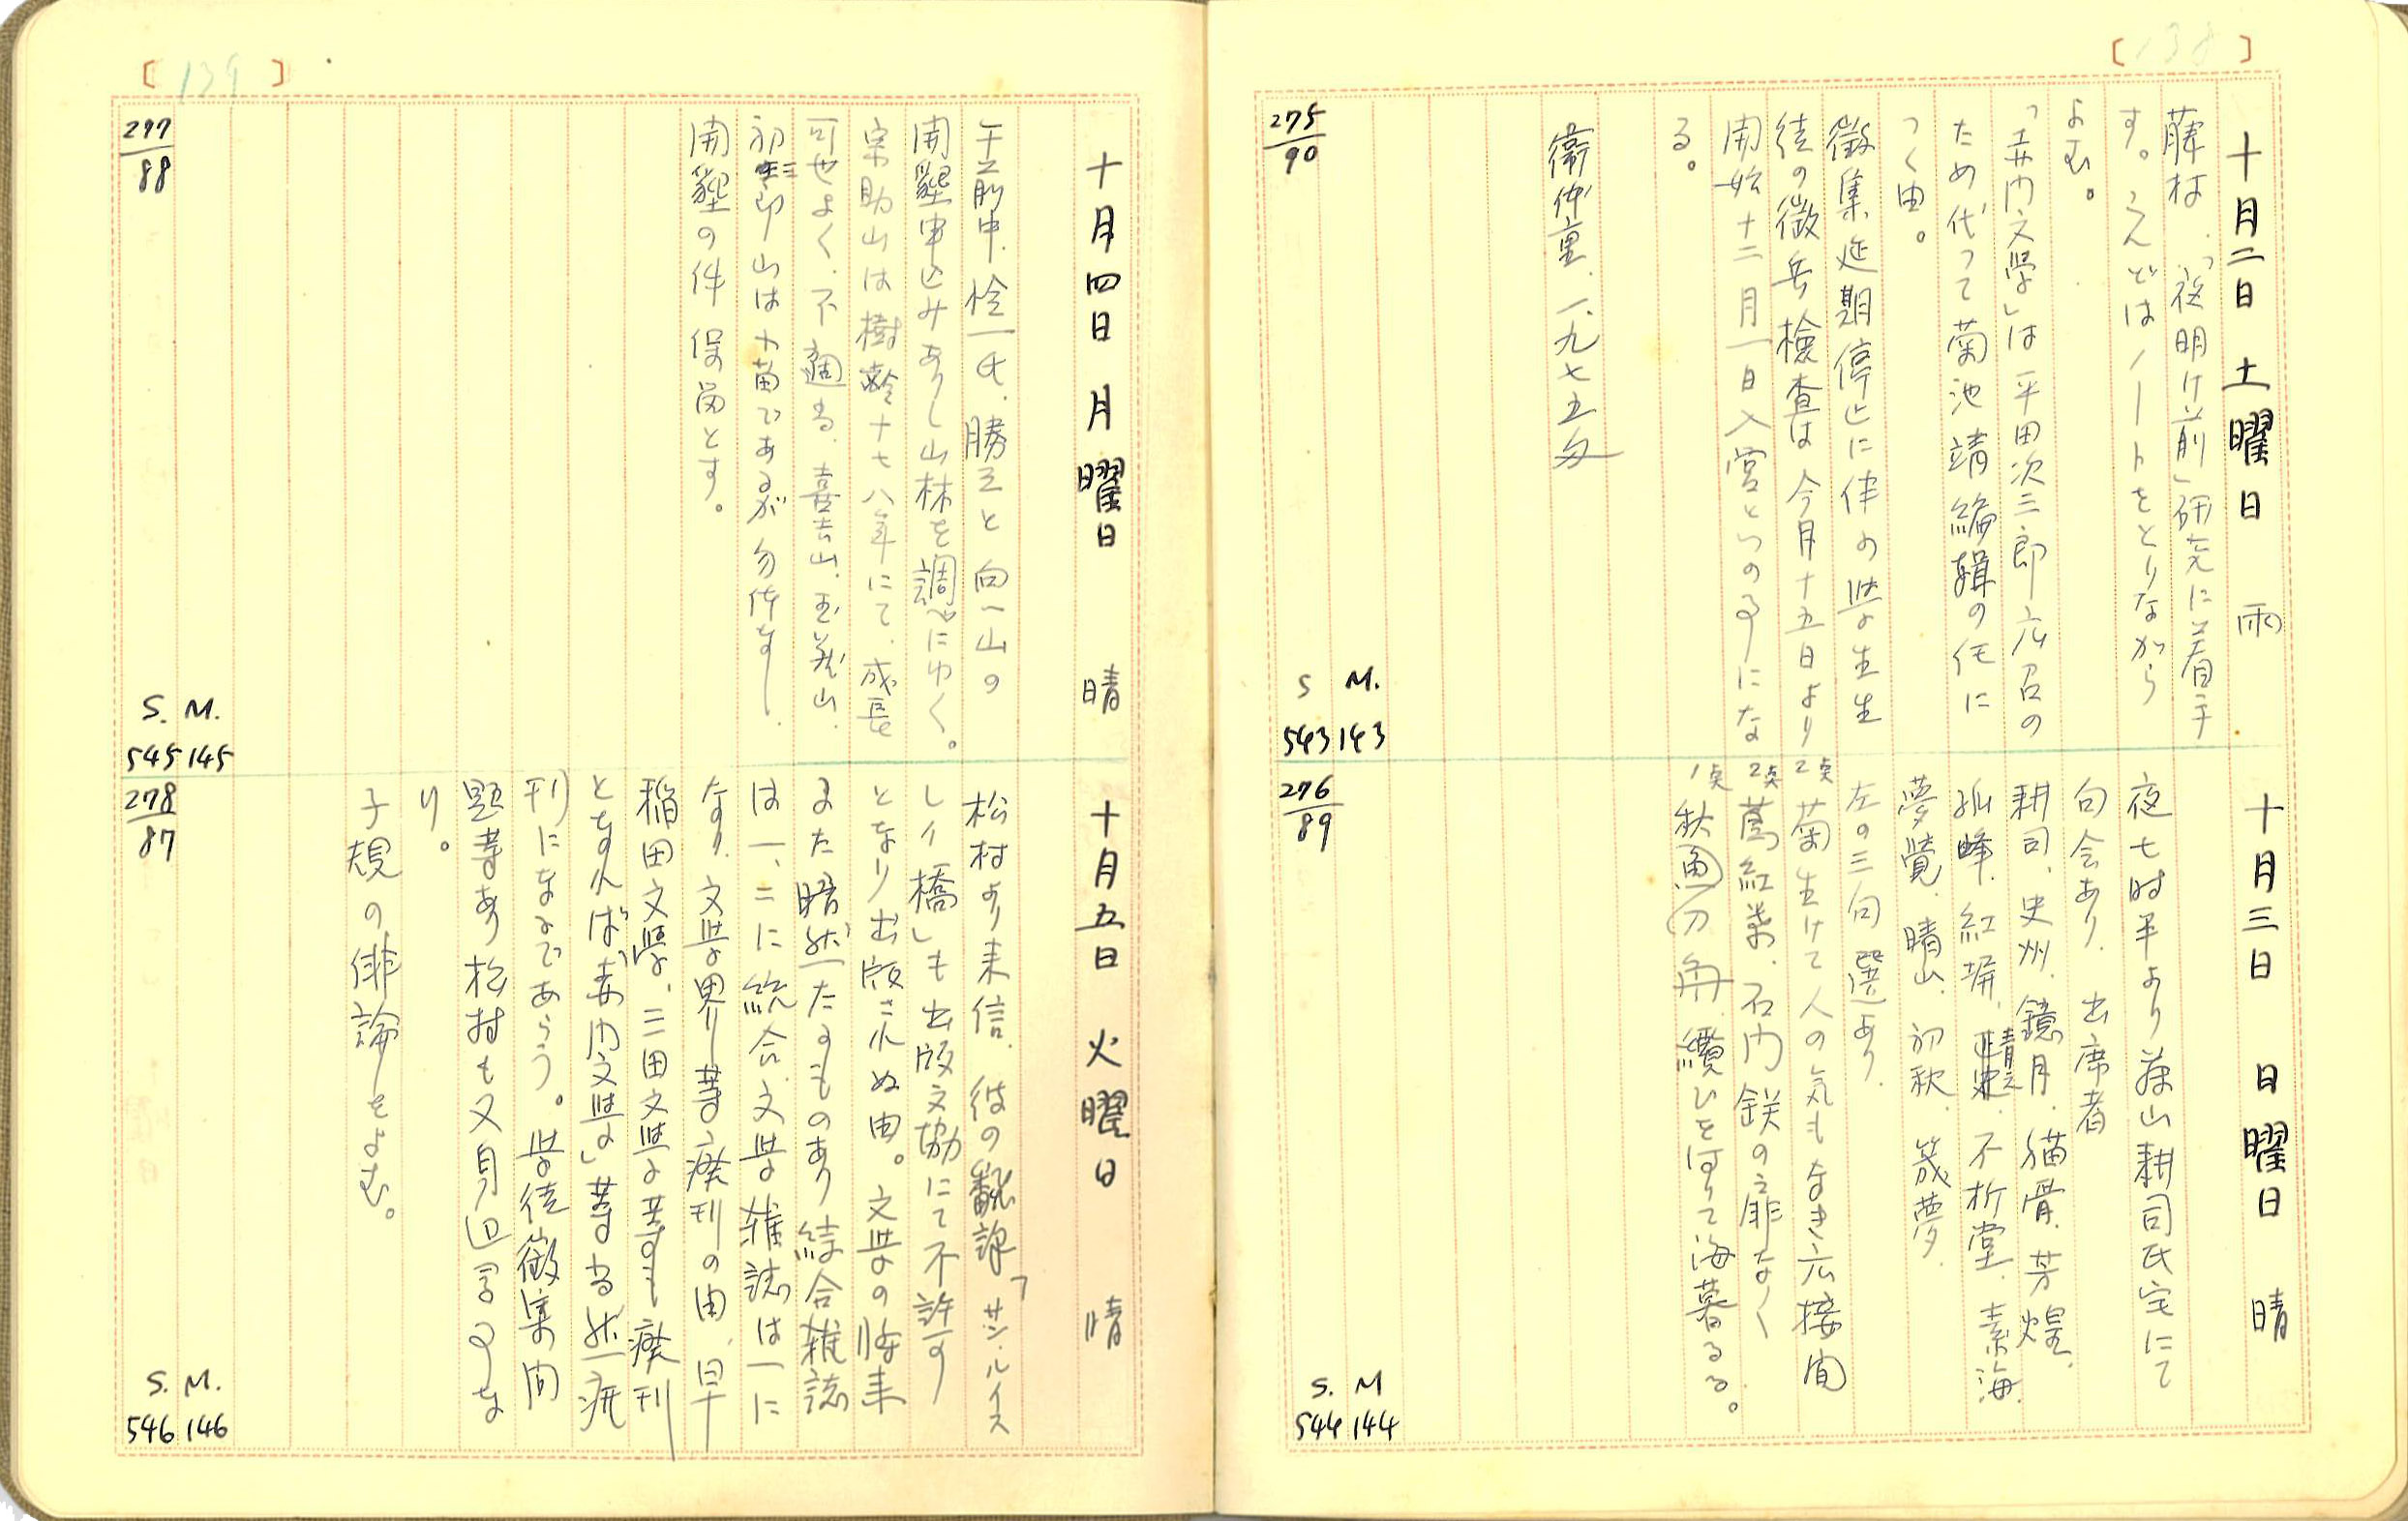 [138]
十月二日 土曜日 雨
藤村、「夜明け前」研究に着手
す。こんどはノートをとりながら
よむ。
「赤門文学」は平田次三郎応召の
ため代って菊池靖編輯の任に
つく由。
徴集延期停止に伴ふ学生生
徒の徴兵検査は今月十五日より
開始十二月一日入営といふことにな
る。
衛仲重、一、九七五匁
275/90
S M.
543 143
十月三日 日曜日 晴
夜七時半より 山耕司氏宅にて
句会あり、出席者
耕司、史州、鏡月、猫骨、芳煌、
孤峰、紅塀、晴史、不折堂、素海、
夢覚、晴山、初秋、筬夢、
左の三句選あり、
2点 菊生けて人の気もなき応接間
2点 蔦紅葉、石門鉄の扉なく
1点 秋魚の舟、纜ひを解て海暮るる。
276/89
S. M
544 144
[139]
十月四日 月曜日 晴
午前中、恰一氏、勝三と向一山の
開墾申込みありし山林を調べにゆく。
宗助山は樹齢十七八年にて、成長
可也よく、不適当、喜吉山、玉義山、
初三郎山は小苗であるが勿体なし、
開墾の件保留とす。
277/88
S. M.
545 145
十月五日 火曜日 晴
松村より来信、彼の翻訳「サン・ルイス
レイ橋」も出版文協にて不許可
となり出版されぬ由。文学の将来
また暗然たるものあり綜合雑誌
は一、二に統合、文学雑誌は一に
なり、文学界等廃刊の由、早
稲田文学、三田文学等も廃刊
となれば「赤門文学」等当然廃
刊になるであらう。学徒徴集の問
題等あり松村も又身辺 な
り。
子規の俳論をよむ。
278/87
S. M.
546 146